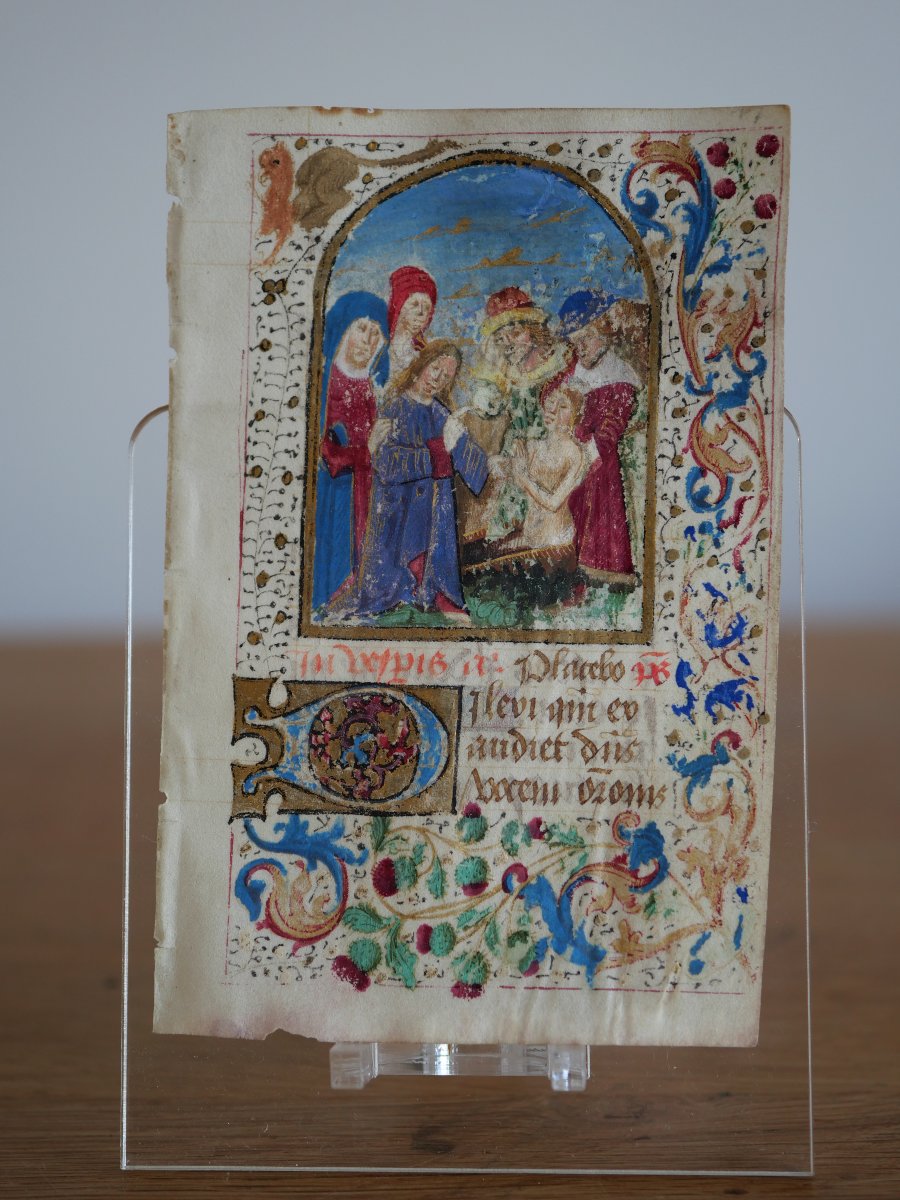 In vesp̄is a᷒. Placebo p̄s
DIlexi qm̄ ex
audiet dn̄s
vocem or̄onis